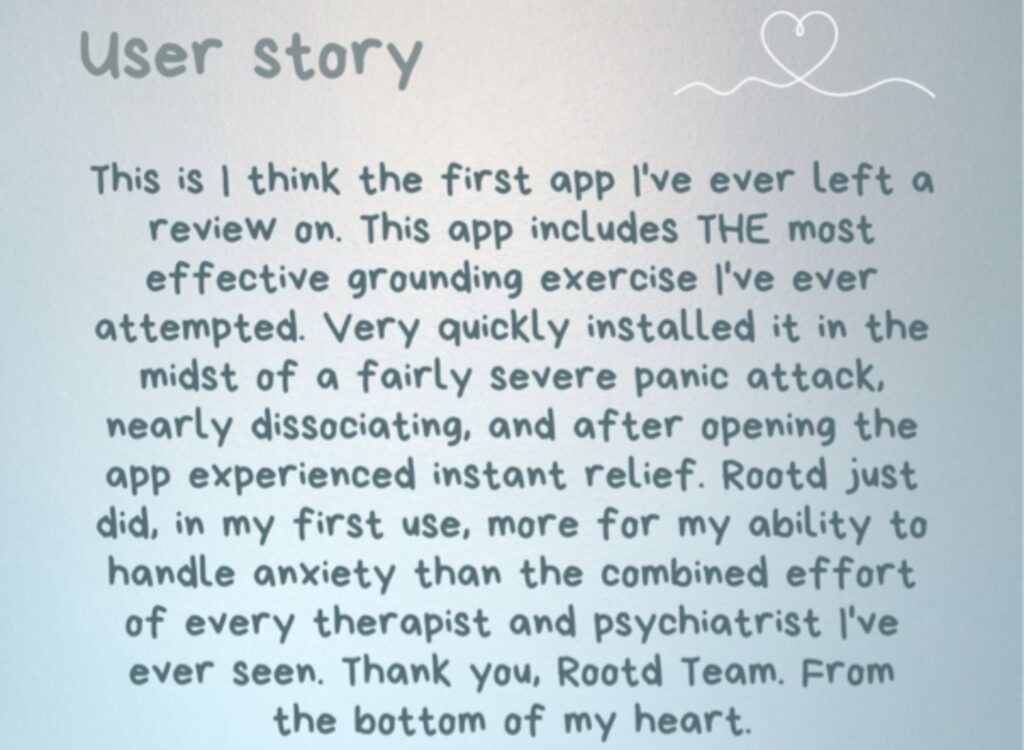 User story
This is I think the first app I've ever left a
review on. This app includes THE most
effective grounding exercise I've ever
attempted. Very quickly installed it in the
midst of a fairly severe panic attack,
nearly dissociating, and after opening the
app experienced instant relief. Rootd just
did, in my first use, more for my ability to
handle anxiety than the combined effort
of every therapist and psychiatrist I've
ever seen. Thank you, Rootd Team. From
the bottom of my heart.